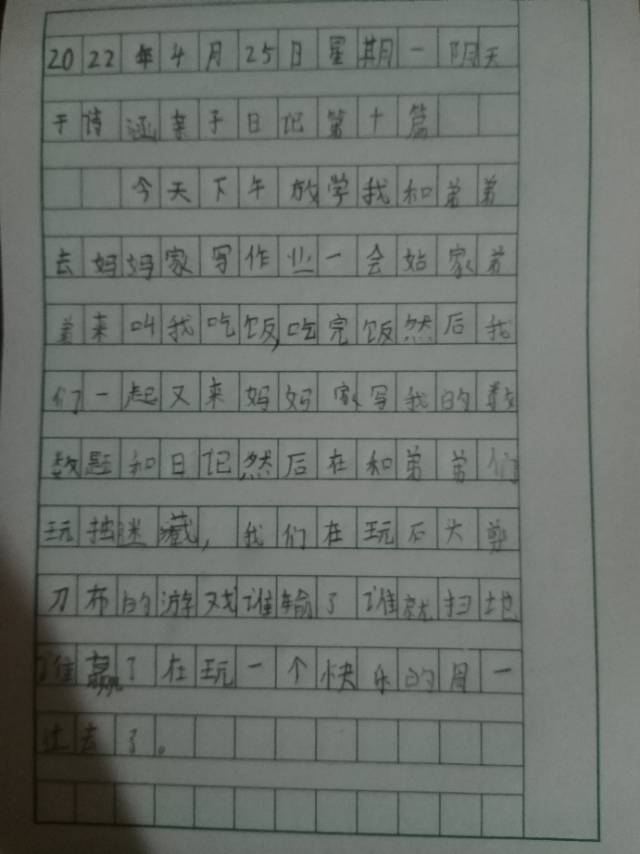 2022年4月25日星期一阴天
于诗涵亲子日记第十篇
今天下午放学我和弟弟
去妈妈家写作业一会姑家弟
弟来叫我吃饭,吃完饭然后我
们一起又来妈妈家写我的数
数题和日记然后在和弟弟们
玩捉迷藏,我们在玩石大剪
刀布的游戏谁输了谁就扫地
谁赢了在玩一个快乐的周一
过去了。